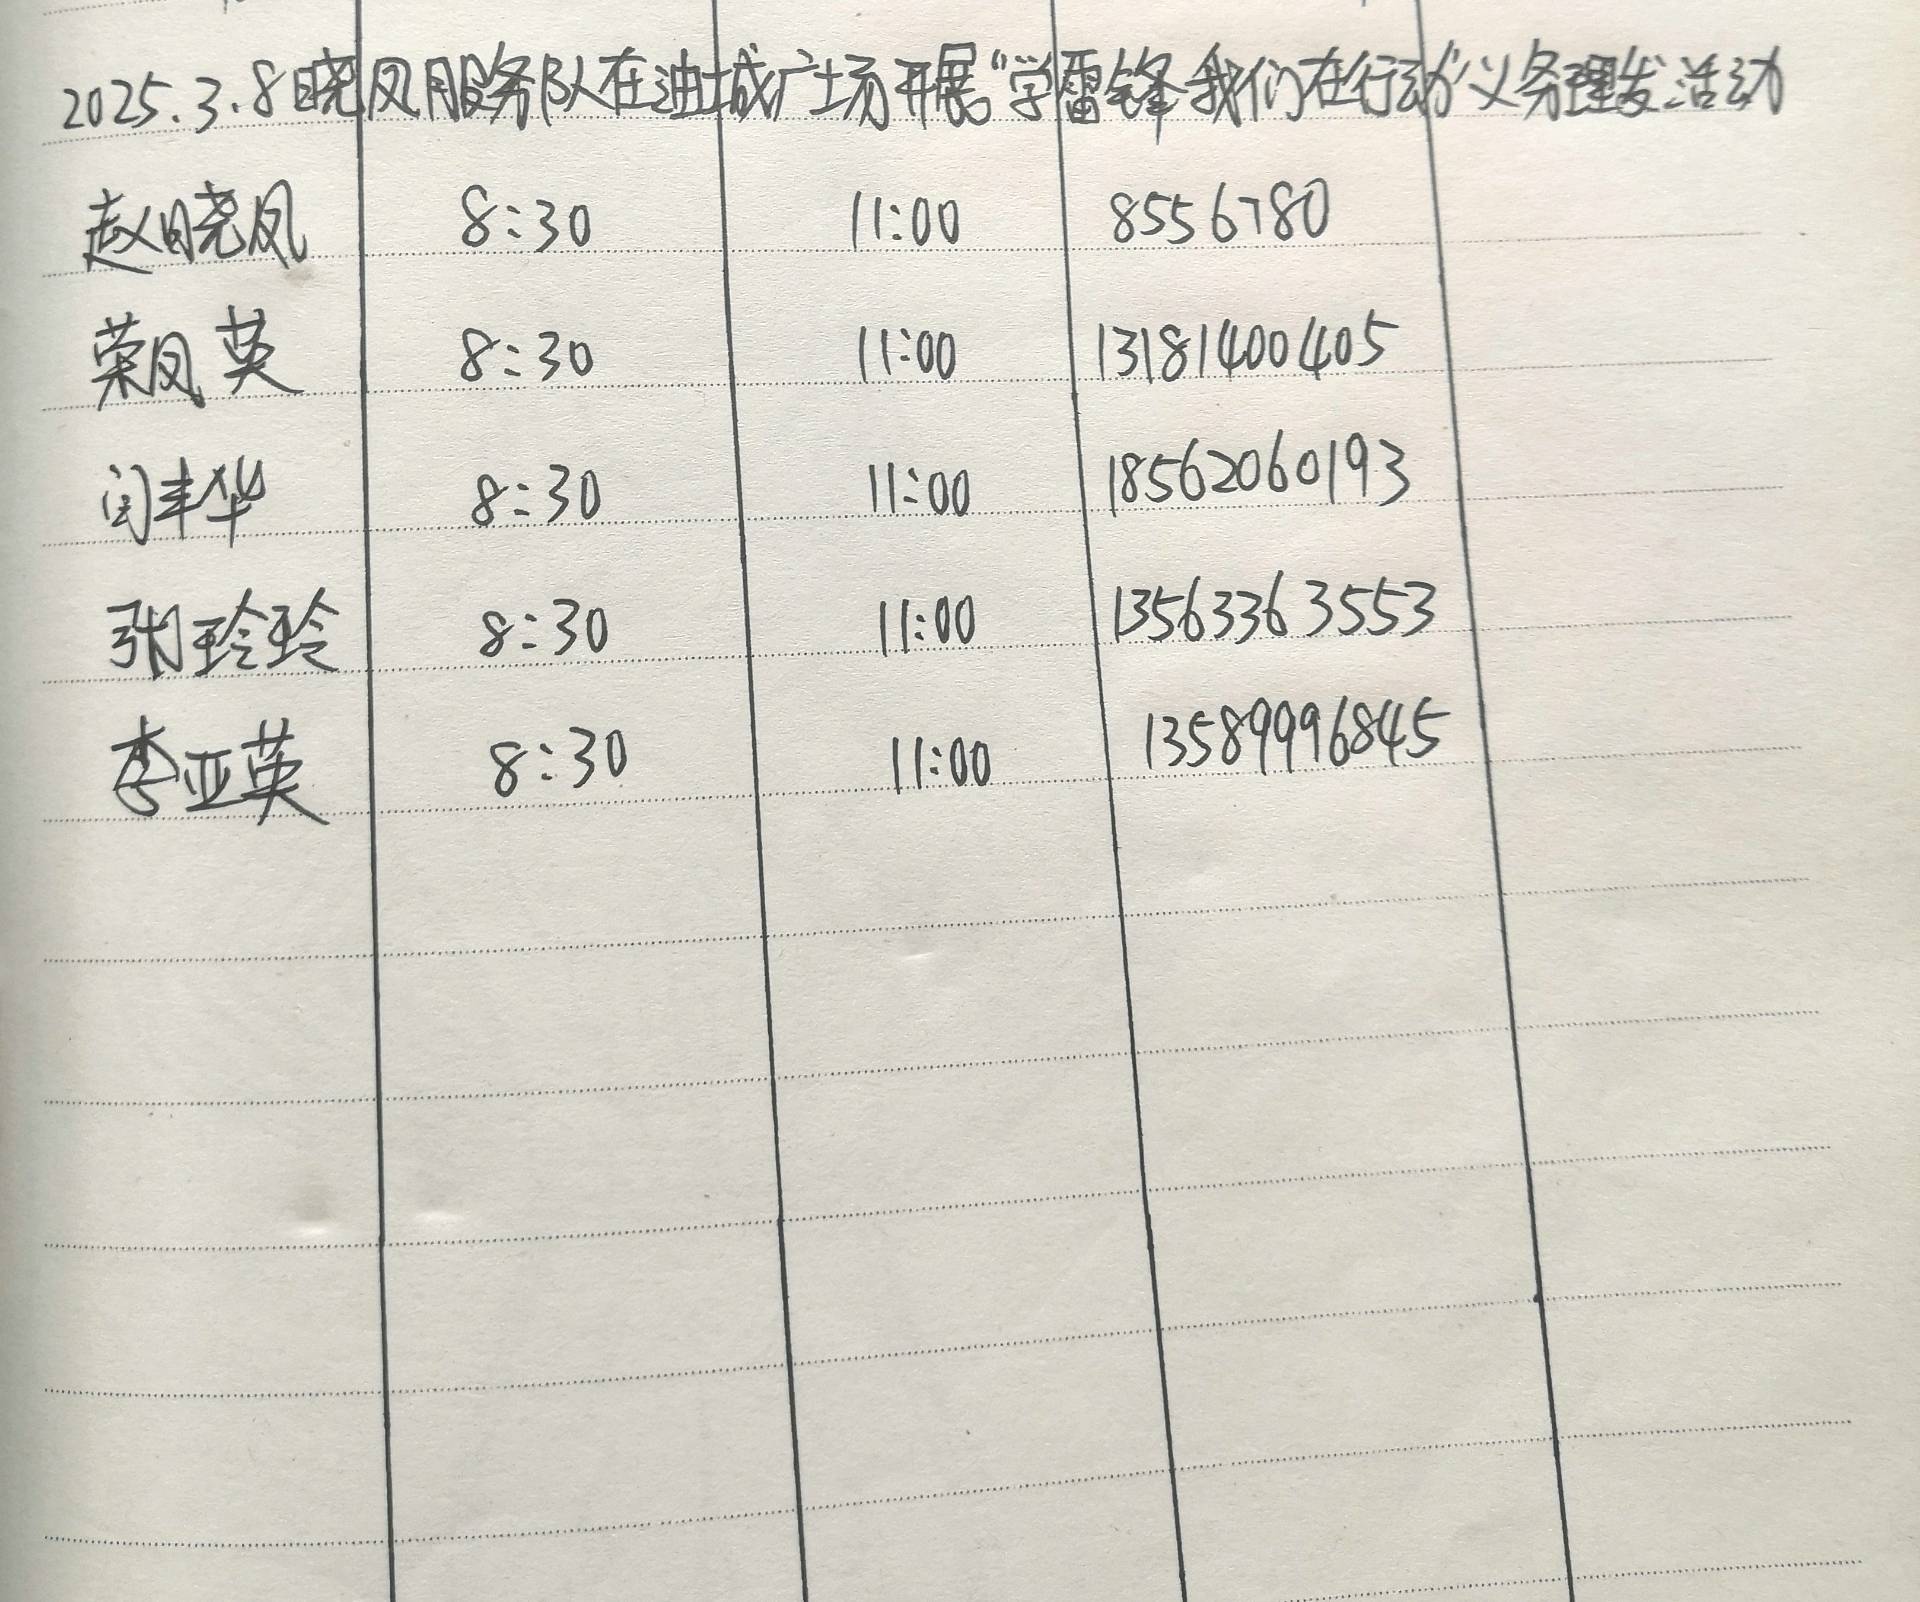 2025.3.8晓凤服务队在油城广场开展"学雷锋我们在行动"义务理发活动
赵晓凤 8:30 11:00 8556780
荣凤英 8:30 11:00 13181400405
闫丰华 8:30 11:00 18562060193
张玲玲 8:30 11:00 13563363553
李亚英 8:30 11:00 13589996845